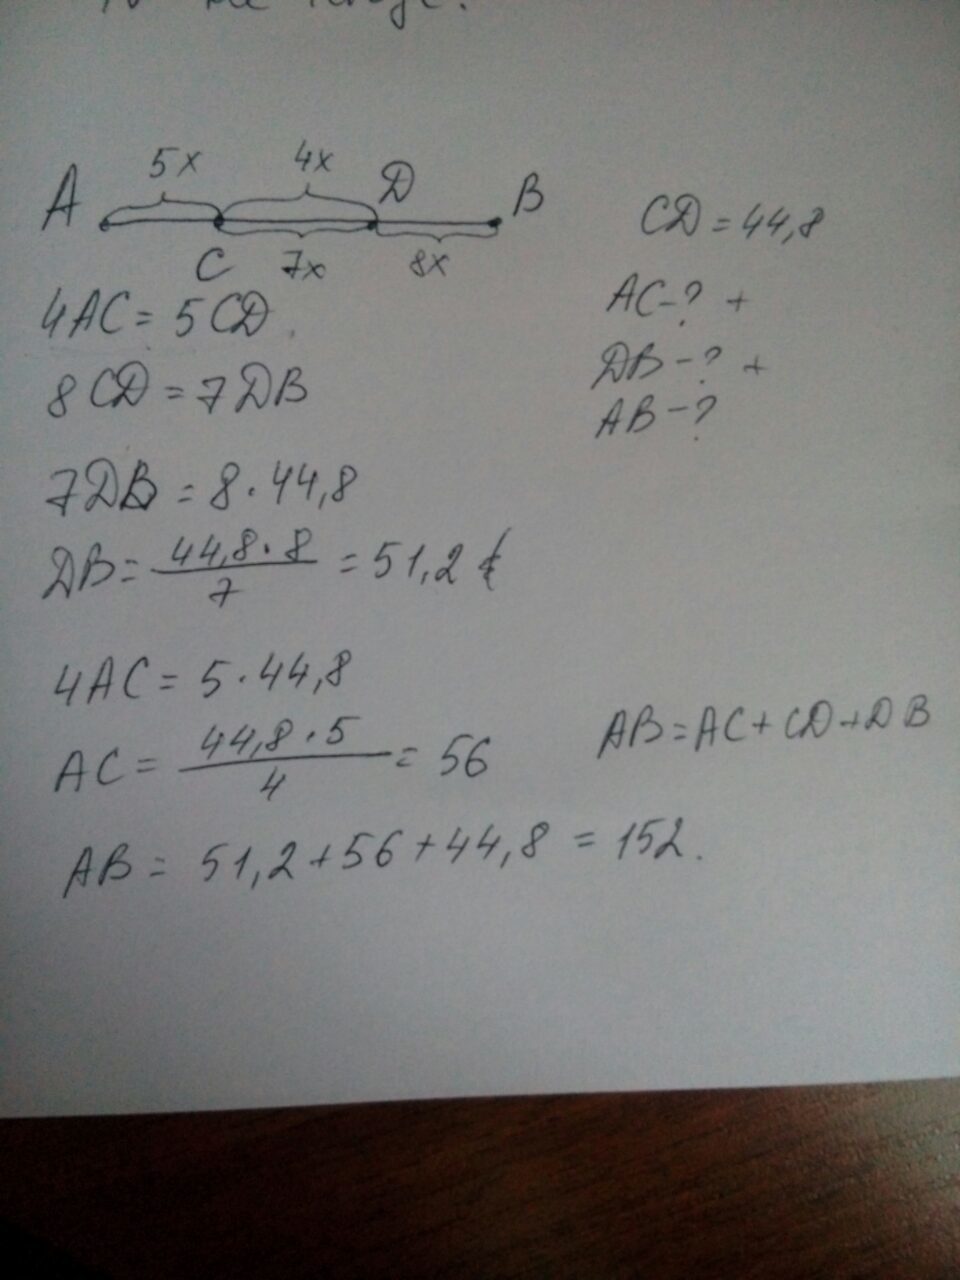 5x 4x
A D B
C 7x 8x
CD = 44,8
AC - ? +
DB - ? +
AB - ?
4AC = 5CD
8CD = 7DB
7DB = 8·44,8
DB = 44,8·8 / 7 = 51,2
4AC = 5·44,8
AC = 44,8·5 / 4 = 56
AB = AC + CD + DB
AB = 51,2 + 56 + 44,8 = 152.